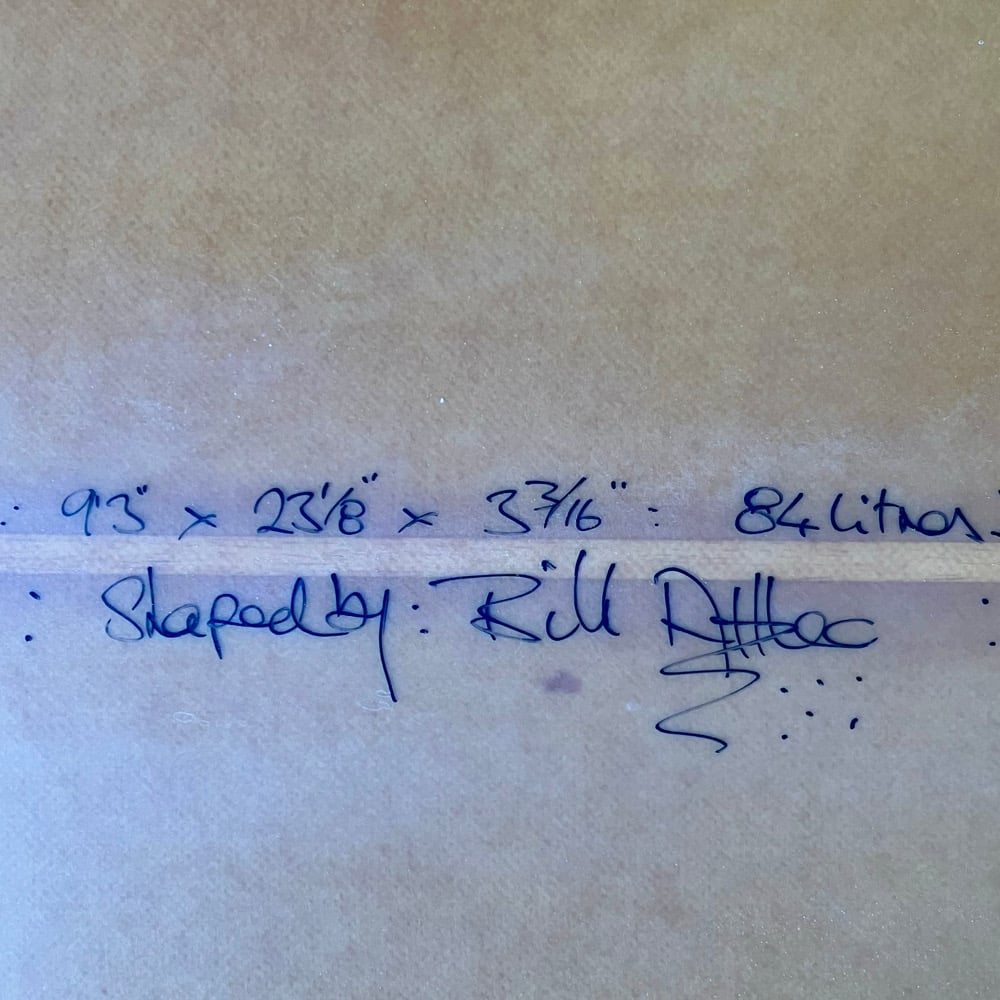 : 9'3" x 23⅛" x 3 3/16" : 84 litres.
: Shaped by : Bill :